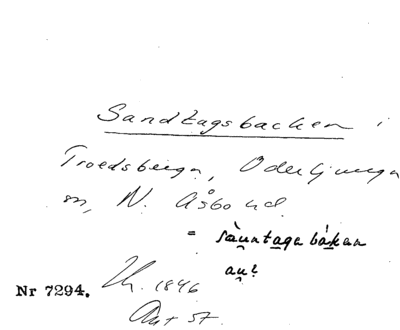 Sandtagsbacken i
Troedsberga, Oderljunga
sn, N. Åsbo hd.
= sàuntaga bákan
au?
Nr 7294. 1846